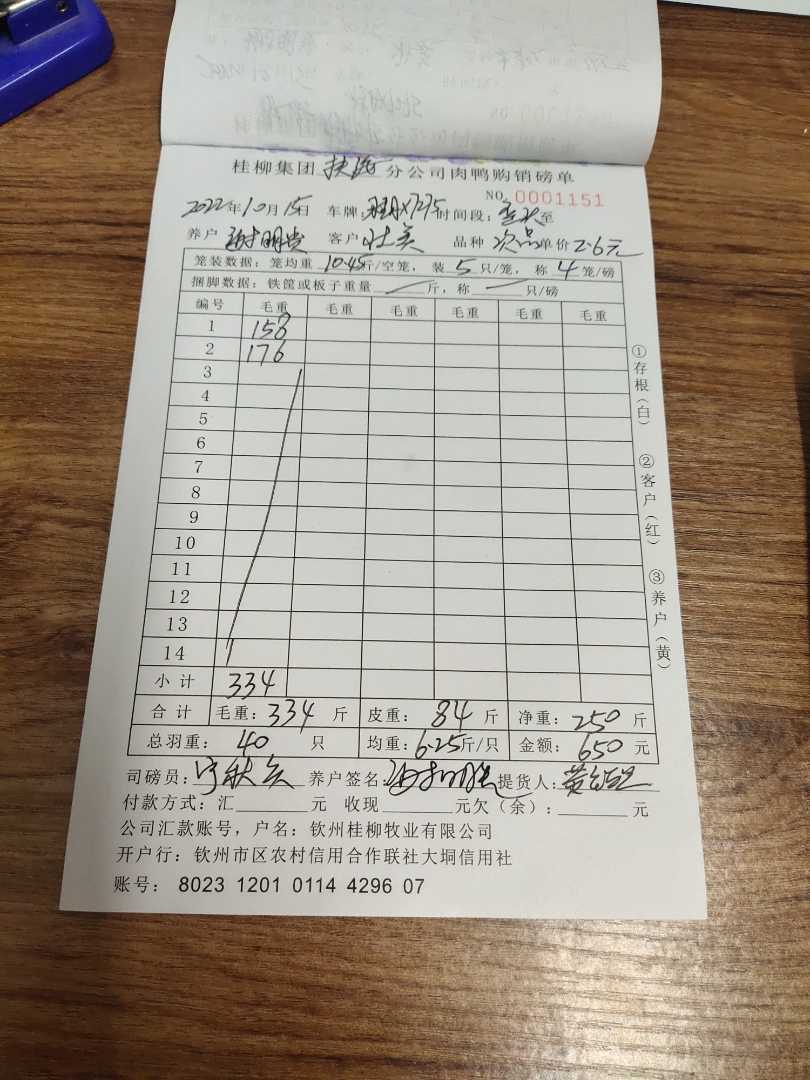 桂柳集团 扶隆 分公司肉鸭购销磅单
NO. 0001151
2022年10月15日 车牌: X7275 时间段: 至
养户 谢明贵 客户 壮美 品种 次品 单价 2.6元
笼装数据: 笼均重 10.45斤/空笼, 装 5 只/笼, 称 4 笼/磅
捆脚数据: 铁筐或板子重量 — 斤, 称 — 只/磅
编号 毛重 毛重 毛重 毛重 毛重 毛重
1 158
2 176
3
4
5
6
7
8
9
10
11
12
13
14
小计 334
合计 毛重: 334 斤 皮重: 84 斤 净重: 250 斤
总羽重: 40 只 均重: 6.25斤/只 金额: 650 元
司磅员: 养户签名: 提货人:
付款方式: 汇 元 收现 元欠(余): 元
公司汇款账号, 户名: 钦州桂柳牧业有限公司
开户行: 钦州市区农村信用合作联社大垌信用社
账号: 8023 1201 0114 4296 07
①存根(白)
②客户(红)
③养户(黄)